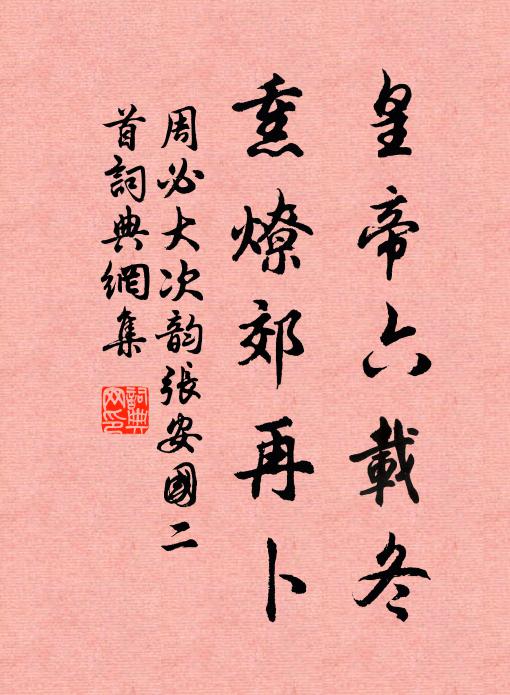 皇帝六載冬
熏燎郊再卜
周必大次韵張安國二
首詞典網集
詞典
网印